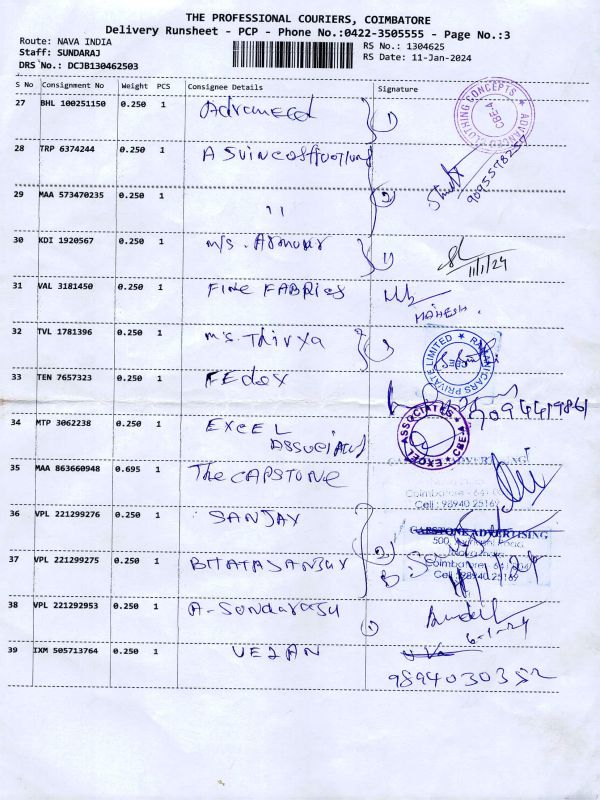 THE PROFESSIONAL COURIERS, COIMBATORE
Delivery Runsheet - PCP - Phone No.:0422-3505555 - Page No.:3
Route: NAVA INDIA
RS No.: 1304625
Staff: SUNDARAJ
RS Date: 11-Jan-2024
DRS No.: DCJB130462503
S No Consignment No Weight PCS Consignee Details Signature
27 BHL 100251150 0.250 1 Advanced
CLOTHING CONCEPTS ★ ADVANCED ★ CBE-4
28 TRP 6374244 0.250 1
9095598257
29 MAA 573470235 0.250 1 11
30 KDI 1920567 0.250 1 m/s. Armour 11/1/24
31 VAL 3181450 0.250 1 FINE FABRICS
MAHESH.
32 TVL 1781396 0.250 1 m/s. Thivya
RAMANICARS PRIVATE LIMITED
33 TEN 7657323 0.250 1 FEdex
34 MTP 3062238 0.250 1 EXCEL
ASSOCIATES
EXCEL ASSOCIATES ★ CBE-4
35 MAA 863660948 0.695 1 The CAPSTONE
Coimbatore - 641
Cell : 98940 25169
36 VPL 221299276 0.250 1 SANJAY
CAPSTONE ADVERTISING
500,
37 VPL 221299275 0.250 1
Coimbatore - 641 004
Cell : 98940 25169
38 VPL 221292953 0.250 1 A-Sundarasu
6-1-24
39 IXM 505713764 0.250 1 VELAN
9894030352